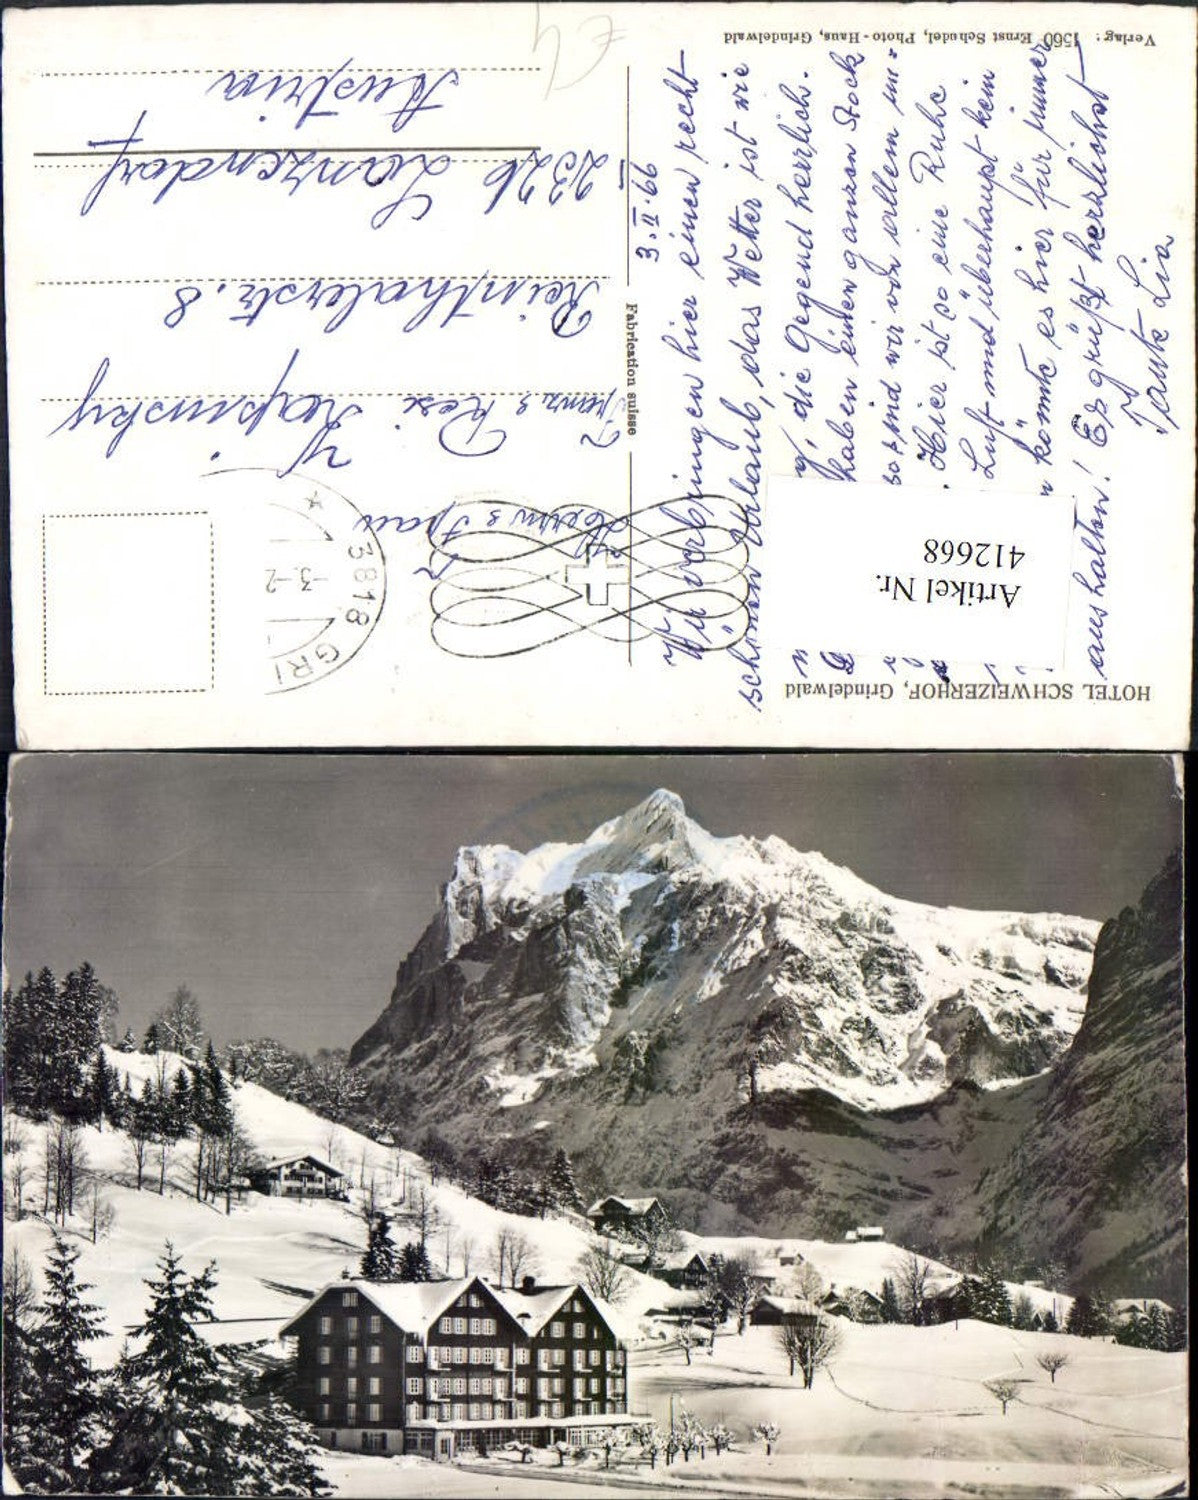 HOTEL SCHWEIZERHOF, Grindelwald
3. II. 66
Wir verbringen hier einen recht
schönen Urlaub, das Wetter ist wie
die Gegend herrlich.
haben einen ganzen Stock
so sind wir von allem un=
Hier ist so eine Ruhe
Luft und überhaupt kein
könnte es hier für immer
aushalten! Es grüßt herzlichst
Tante Lia
Verlag: 1560 Ernst Schudel, Photo-Haus, Grindelwald
Fabrication suisse
3818 GRI
3.-2
Herrn & Frau
Franz & Rosi
Reinthalerstr. 8
2326 Lanzendorf
Austria
Artikel Nr.
412668